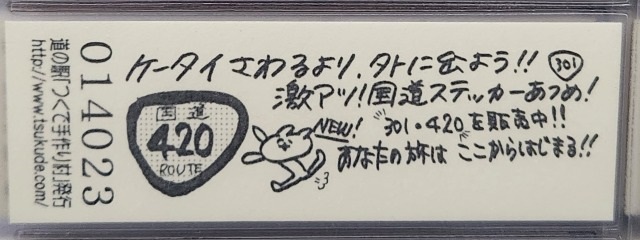 ケータイさわるより、外に出よう!!
301
激アツ!国道ステッカーあつめ!
NEW!
301・420を販売中!!
あなたの旅は ここからはじまる!!
国道
420
ROUTE
014023
道の駅「つくで手作り村」発行
http://www.tsukude.com/